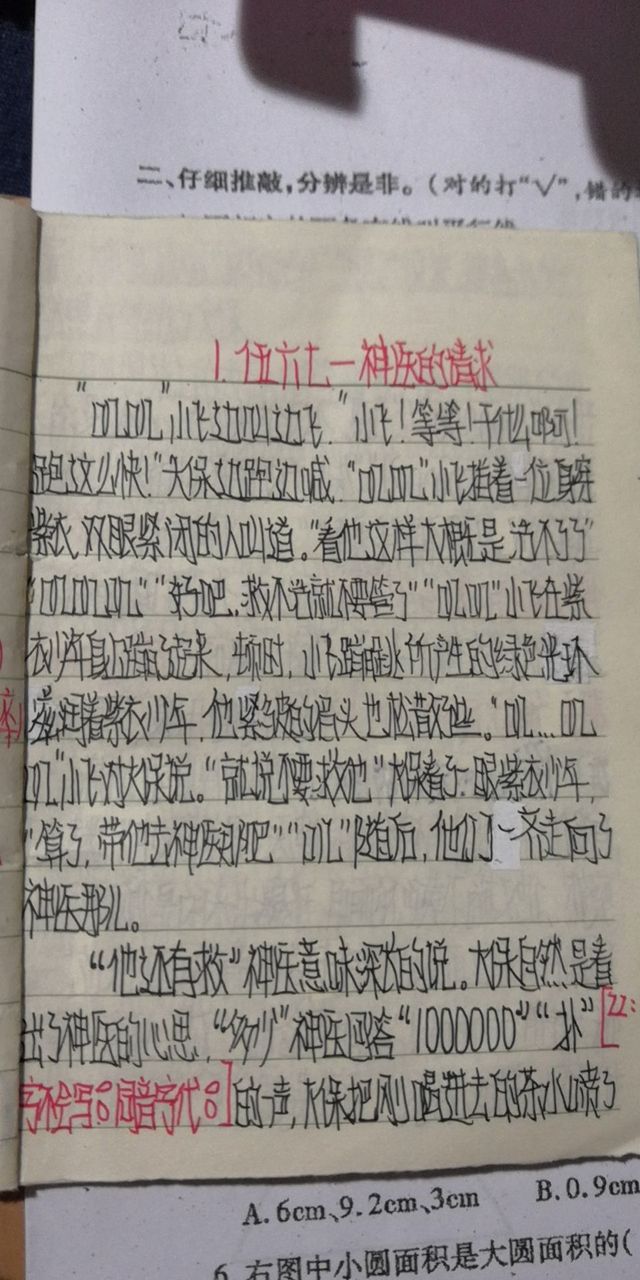 二、仔细推敲,分辨是非。(对的打“√”,错的
1.伍六七一神医的请求
“叽叽”小飞边叫边飞.“小飞!等等!干什么啊!
跑这么快!”大保边跑边喊.“叽叽”小飞指着一位身穿
紫衣,双眼紧闭的人叫道。“看他这样大概是活不了了”
“叽叽叽”“好吧..救不活就不要管了”“叽叽”小飞在紫
衣少年身上蹦了起来,顿时,小飞蹦跳所产生的绿色光环
滋润着紫衣少年,他紧皱的眉头也松散了些。“叽...叽
叽”小飞对大保说。“就说不要救他”大保看了一眼紫衣少年,
“算了,带他去神医那吧”“叽”随后,他们一齐走向了
神医那儿。
“他还有救”神医意味深长的说。大保自然是看
出了神医的心思,“多少”神医回答“1000000”“扑”[22:
字不会写 同音字代 ]的一声,大保把刚喝进去的茶水喷了
A.6cm、9.2cm、3cm B.0.9cm
6.右图中小圆面积是大圆面积的(